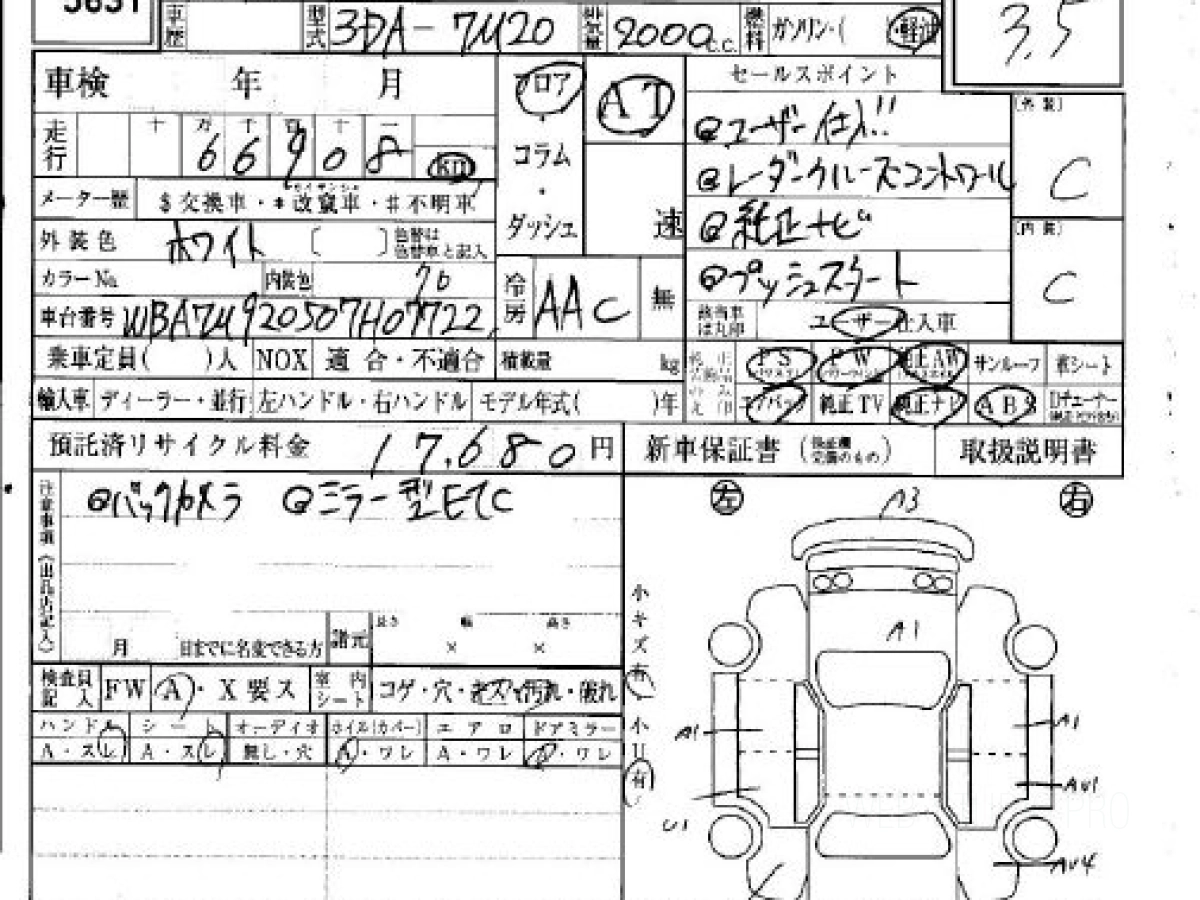 5831
車歴 型式 3DA-7M20 排気量 2000c.c. 燃料 ガソリン・(軽油
3.5
車検 年 月 フロア AT セールスポイント (外装)
走行 十 万 千 百 十 一 ・ @ユーザー仕入!!
66908 km コラム @レーダークルーズコントロール C
メーター歴 $交換車・*改竄車・#不明車 ・ 速 @純正ナビ (内装)
外装色 ホワイト 〔 〕色替は色替車と記入 ダッシュ @プッシュスタート C
カラーNo. 内装色 冷房 AAC 無 該当車は丸印 ユーザー仕入車
車台番号 WBA7M920507H07722
乗車定員( )人 NOX 適合・不適合 積載量 kg PS PW 純正AW サンルーフ 革シート
輸入車 ディーラー・並行 左ハンドル・右ハンドル モデル年式( )年 エアバッグ 純正TV 純正ナビ ABS Dチューナー
預託済リサイクル料金 17,680円 新車保証書 取扱説明書
注意事項(出品店記入) @バックカメラ @ミラー型ETC
左 A3 右
月 日までに名変できる方 諸元 長さ × 幅 × 高さ
A1
検査員記入 FW A・X要ス 室内シート コゲ・穴・キズ・汚れ・破れ
小キズ有 小U有
ハンドル シート オーディオ ホイル(カバー) エアロ ドアミラー
A・スレ A・スレ 無し・穴 A・ワレ A・ワレ A・ワレ
A1 A1
AU1
U1
AU4